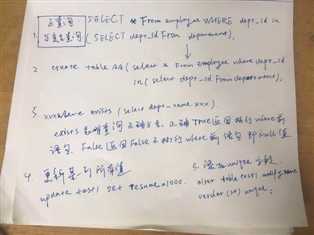 SELECT * From employee WHERE dept_id in
1. 多表查询 (SELECT dept_id From department);
2. create table AA (select * From employee where dept_id
in (select dept_id From department);
3. where exists (select dept_name xxx)
exists 查询 True返回 执行where前
语句, False返回False 不执行where前语句 即null值
4. 更新某列所有值
update test1 set resume=1000.
5. 添加unique字段
alter table test1 modify name
unique;